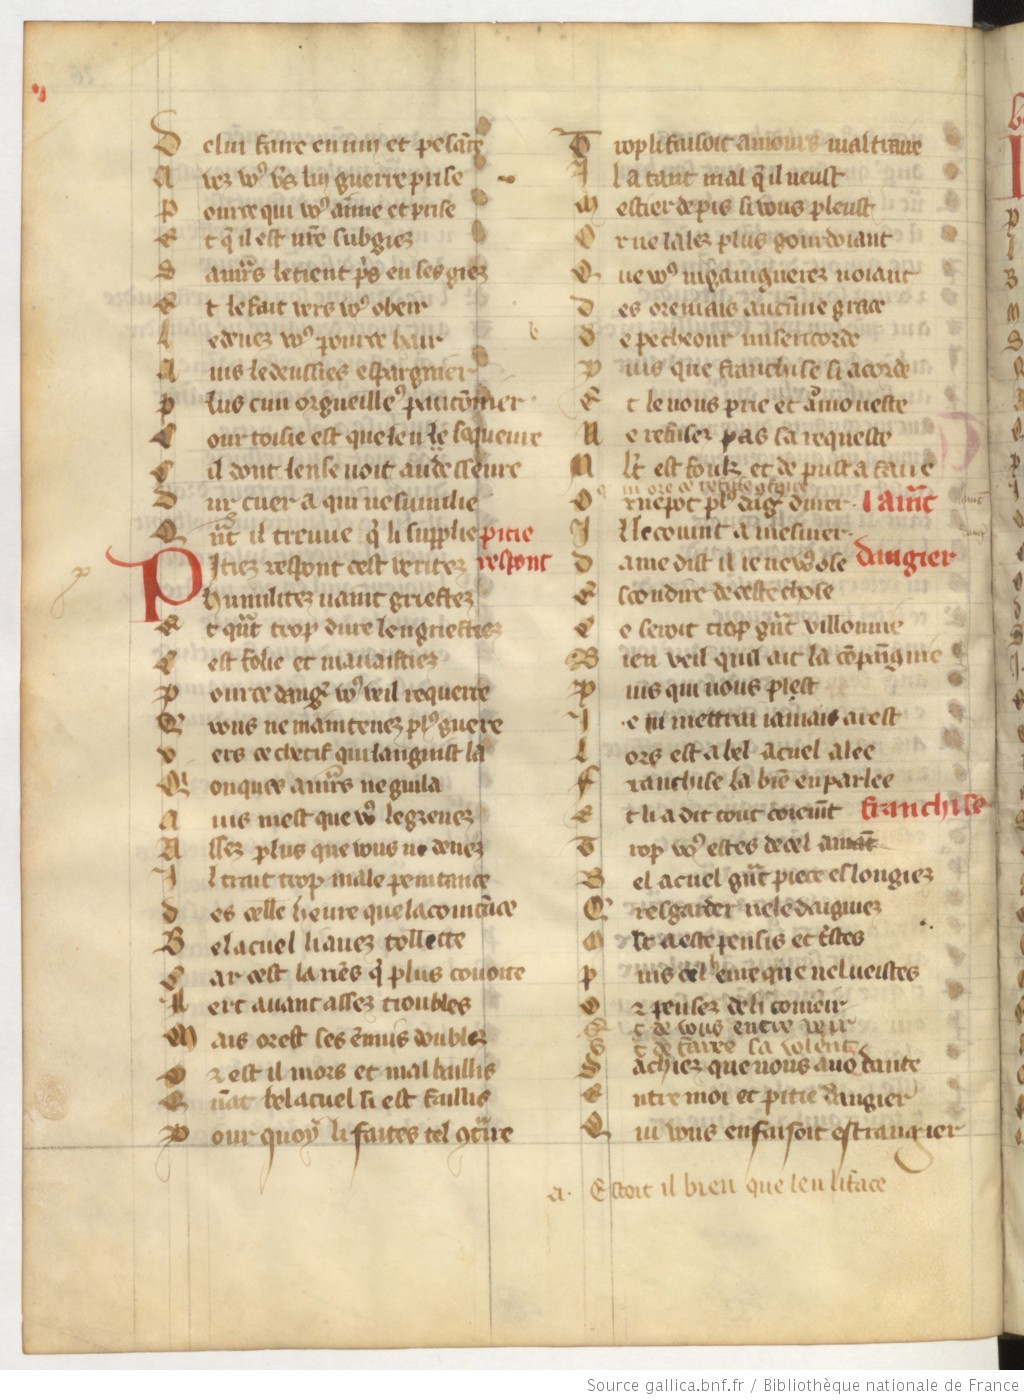 De lui faire ennui et pesāce
Avez vꝰ vers luy guerre prise
Pource qui vꝰ aime et prise
Et q̄ il est vr̄e subgiez
Samors le tient p̄s en ses giez
Et le fait vers vꝰ obeir
Le devez vꝰ pource hair
Ains le deussies espargnier
Plus cun orgueilleꝰ pautōnier
Courtoisie est que len le sequeure
Cil dont len se voit au desseure
Dur cuer a qui ne sumilie
Qūt il treuve q̄ li supplie pitie
Pitiez respont cest veritez respont
Humilitez vaint griestez
Et qūt trop dure lengriestiez
Cest folie et mauvaistiez
Pource dangꝰ vꝰ veil requerre
Q vous ne maintenez plꝰ guere
Vers ce chetif qui languist la
Qonques amors ne guila
Avis mest que vꝰ le grevez
Assez plus que vous ne devez
Il trait trop male penitance
Des celle heure que lacointāce
Bel acuel li avez tollette
Car cest la riēs q̄ plus covoite
Il ert avant assez troubles
Mais orest ses ennuis doublez
Or est il mors et mal baillis
Qūat bel acuel li est faillis
Pour quoy li faites tel ꝯt̄re
Trop li faisoit amours mal traire
Il a tant mal q̄ il neust
Mestier de pis si vous pleust
Or ne lalez plus gourdoiant
Que vꝰ ni gaaignerez noiant
Des ore mais aucūne grace
De pecheour misericorde
Puis que franchise si acorde
Et le vous prie et amoneste
Ne refuser pas sa requeste
Mlt est fouls et de put a faire
Or ne pot plꝰ dāgꝰ durer lamāt
Il le couint amesurer
Dame dist il ie ne vꝰ ose dangier
Escondire de ceste chose
Ce seroit trop gr̄t villonnie
Bien veil quil ait la cōpāgnie
Puis qui vous plest
Ie ni mettrai iamais arest
Lors est a bel acuel alee
Franchise la biē enparlee
Et li a dit tout coiemēt franchise
Trop vꝰ estes de cel amāt
Bel acuel gr̄t piece eslongiez
Qresgarder ne le daigniez
Mlt a este pensis et tristes
Puis cel heure que nel veistes
Or pensez de li conioir
Se de vous entre veir
Et de faire sa volente
Sachiez que nous avōs dante
Entre moi et pitie dangier
Qui vous en faisoit estrangier
a. Estoit il bien que len li face